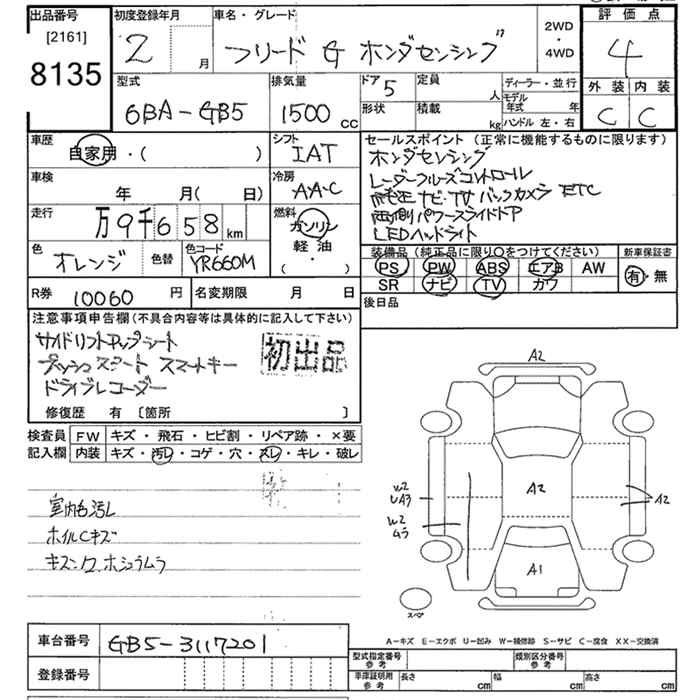 出品番号 初度登録年月 車名・グレード 2WD・4WD 評価点
[2161]
8135
2 月 フリード G ホンダセンシング 4
型式 排気量 ドア 5 定員 人 ディーラー・並行 外装 内装
6BA-GB5 1500 cc 形状 積載 kg モデル年式 年 C C
ハンドル 左・右
車歴 自家用・( ) シフト IAT セールスポイント (正常に機能するものに限ります)
ホンダセンシング
車検 年 月( 日) 冷房 AAC レーダークルーズコントロール
純正ナビ・TV バックカメラ ETC
走行 万9千658km 燃料 ガソリン 軽油 ( ・ ) 両側パワースライドドア
LEDヘッドライト
色 オレンジ 色替 色コード YR660M 装備品 (純正品に限り○をつけてください) 新車保証書
PS PW ABS エアB AW 有・無
SR ナビ TV カワ
R券 10060 円 名変期限 月 日 後日品
注意事項申告欄 (不具合内容等は具体的に記入して下さい)
サイドリフトアップシート
プッシュスタート スマートキー 初出品
ドライブレコーダー
修復歴 有 〔箇所 〕
検査員 FW キズ・飛石・ヒビ割・リペア跡・×要
記入欄 内装 キズ・汚レ・コゲ・穴・スレ・キレ・破レ
室内色汚レ
ホイルCキズ
キズンクホシュウムラ
A2
A2
W2
UA3
A2
W2
A1
スペア
A-キズ E-エクボ U-凹み W-補修跡 S-サビ C-腐食 XX-交換済
車台番号 GB5-3117201
型式指定番号 参考 類別区分番号 参考
登録番号 車庫証明用 参考 長さ cm 幅 cm 高さ cm